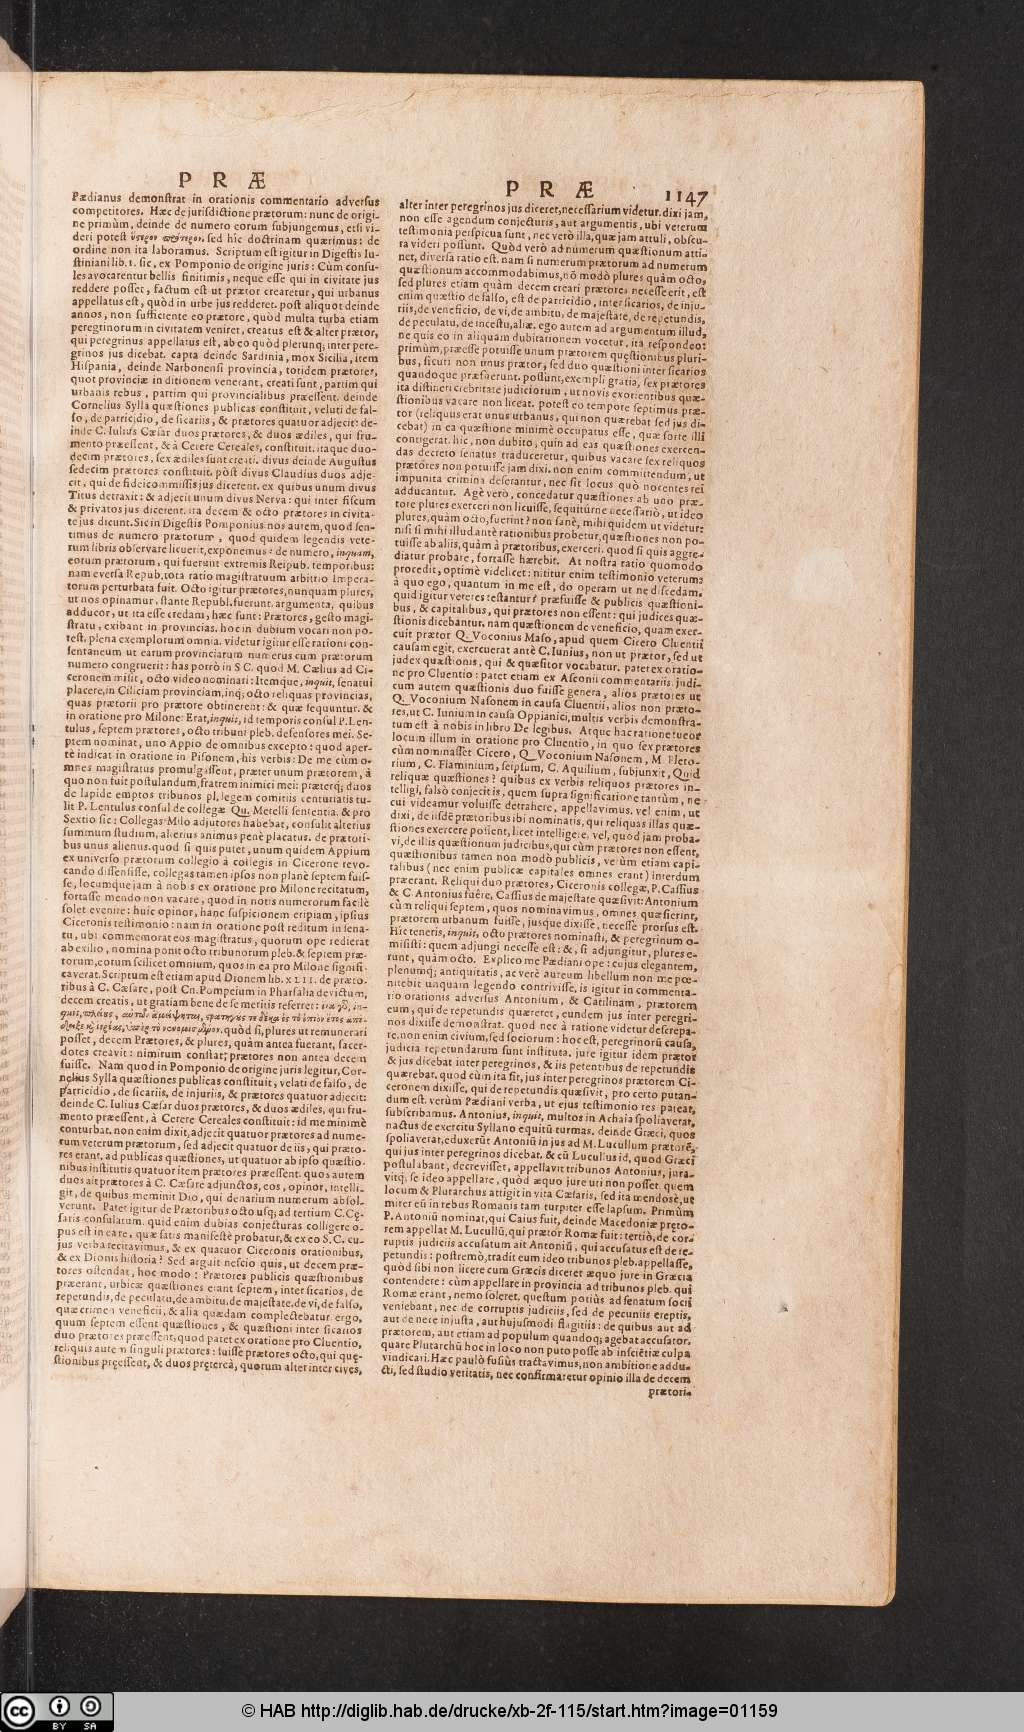 P R Æ
Pædianus demonſtrat in orationis commentario adverſus
competitores. Hæc de jurisdictione prætorum: nunc de origi-
ne primùm, deinde de numero eorum ſubjungemus, etſi vi-
deri poteſt ὕστερον πρότερον, ſed hîc doctrinam quærimus: de
ordine non ita laboramus. Scriptum eſt igitur in Digeſtis Iu-
ſtiniani lib. 1. ſic, ex Pomponio de origine juris: Cùm conſu-
les avocarentur bellis finitimis, neque eſſe qui in civitate jus
reddere poſſet, factum eſt ut prætor crearetur, qui urbanus
appellatus eſt, quòd in urbe jus redderet. poſt aliquot deinde
annos, non ſufficiente eo prætore, quòd multa turba etiam
peregrinorum in civitatem veniret, creatus eſt & alter prætor,
qui peregrinus appellatus eſt, ab eo quòd plerunq; inter pere-
grinos jus dicebat. capta deinde Sardinia, mox Sicilia, item
Hiſpania, deinde Narbonenſi provincia, totidem prætores,
quot provinciæ in ditionem venerant, creati ſunt, partim qui
urbanis rebus, partim qui provincialibus præeſſent. deinde
Cornelius Sylla quæſtiones publicas conſtituit, veluti de fal-
ſo, de parricidio, de ſicariis, & prætores quatuor adjecit: de-
inde C. Iulius Cæſar duos prætores, & duos ædiles, qui fru-
mento præeſſent, & à Cerere Cereales, conſtituit. itaque duo-
decim prætores, ſex ædiles ſunt creati. divus deinde Auguſtus
ſedecim prætores conſtituit. pòſt divus Claudius duos adje-
cit, qui de fideicommiſſis jus dicerent. ex quibus unum divus
Titus detraxit: & adjecit unum divus Nerva: qui inter fiſcum
& privatos jus dicerent. ita decem & octo prætores in civita-
te jus dicunt. Sic in Digeſtis Pomponius nos autem, quod ſen-
timus de numero prætorum, quod quidem legendis vete-
rum libris obſervare licuerit, exponemus: de numero, inquam,
eorum prætorum, qui fuerunt extremis Reipub. temporibus:
nam everſa Repub. tota ratio magiſtratuum arbitrio Impera-
torum perturbata fuit. Octo igitur prætores, nunquam plures,
ut nos opinamur, ſtante Republ. fuerunt. argumenta, quibus
adducor, ut ita eſſe credam, hæc ſunt: Prætores, geſto magi-
ſtratu, exibant in provincias. hoc in dubium vocari non po-
teſt. plena exemplorum omnia. videtur igitur eſſe rationi con-
ſentaneum ut earum provinciarum numerus cum prætorum
numero congruerit: has porrò in S C. quod M. Cælius ad Ci-
ceronem miſit, octo video nominari: Itemque, inquit, ſenatui
placere, in Ciliciam provinciam, inq; octo reliquas provincias,
quas prætorii pro prætore obtinerent: & quæ ſequuntur. &
in oratione pro Milone: Erat, inquit, id temporis conſul P. Len-
tulus, ſeptem prætores, octo tribuni pleb. defenſores mei. Se-
ptem nominat, uno Appio de omnibus excepto: quod aper-
tè indicat in oratione in Piſonem, his verbis: De me cùm o-
mnes magiſtratus promulgaſſent, præter unum prætorem, à
quo non fuit poſtulandum, fratrem inimici mei: præterq; duos
de lapide emptos tribunos pl. legem comitiis centuriatis tu-
lit P. Lentulus conſul de collegæ Qu. Metelli ſententia. & pro
Sextio ſic: Collegas Milo adjutores habebat, conſulit alterius
ſummum ſtudium, alterius animus penè placatus. de prætori-
bus unus alienus. quod ſi quis putet, unum quidem Appium
ex univerſo prætorum collegio à collegis in Cicerone revo-
cando diſſenſiſſe, collegas tamen ipſos non planè ſeptem fuiſ-
ſe, locumque jam à nobis ex oratione pro Milone recitatum,
fortaſſe mendo non vacare, quod in notis numerorum facilè
ſolet evenire: huic opinor, hanc ſuſpicionem eripiam, ipſius
Ciceronis teſtimonio: nam in oratione poſt reditum in ſena-
tu, ubi commemorat eos magiſtratus, quorum ope redierat
ab exilio, nomina ponit octo tribunorum pleb. & ſeptem præ-
torum, eorum ſcilicet omnium, quos in ea pro Milone ſignifi-
caverat. Scriptum eſt etiam apud Dionem lib. XLII. de præto-
ribus à C. Cæſare, poſt Cn. Pompeium in Pharſalia devictum,
decem creatis, ut gratiam bene de ſe meritis referret:
quod ſi, plures ut remunerari
poſſet, decem Prætores, & plures, quàm antea fuerant, ſacer-
dotes creavit: nimirum conſtat; prætores non antea decem
fuiſſe. Nam quod in Pomponio de origine juris legitur, Cor-
nelius Sylla quæſtiones publicas conſtituit, velati de falſo, de
parricidio, de ſicariis, de injuriis, & prætores quatuor adjecit:
deinde C. Iulius Cæſar duos prætores, & duos ædiles, qui fru-
mento præeſſent, à Cerere Cereales conſtituit: id me minimè
conturbat. non enim dixit, adjecit quatuor prætores ad nume-
rum veterum prætorum, ſed adjecit quatuor de iis, qui præto-
res erant, ad publicas quæſtiones, ut quatuor ab ipſo quæſtio-
nibus inſtitutis quatuor item prætores præeſſent. quos autem
duos ait prætores à C. Cæſare adjunctos, eos, opinor, intelli-
git, de quibus meminit Dio, qui denarium numerum abſol-
verunt. Patet igitur de Prætoribus octo uſq; ad tertium C. Cę-
ſaris conſulatum. quid enim dubias conjecturas colligere o-
pus eſt in eare, quæ ſatis manifeſtè probatur, & ex eo S. C. cu-
jus verba recitavimus, & ex quatuor Ciceronis orationibus,
& ex Dionis hiſtoria? Sed arguit neſcio quis, ut decem præ-
tores oſtendat, hoc modo: Prætores publicis quæſtionibus
præerant, urbicæ quæſtiones erant ſeptem, inter ſicarios, de
repetundis, de peculatu, de ambitu, de majeſtate, de vi, de falſo,
quæ crimen veneficii, & alia quædam complectebatur ergo,
quum ſeptem eſſent quæſtiones, & quæſtioni inter ſicarios
duo prætores præeſſent; quod patet ex oratione pro Cluentio,
reliquis autem ſinguli prætores: fuiſſe prætores octo, qui quę-
ſtionibus pręeſſent, & duos pręterea, quorum alter inter cives,
P R Æ 1147
alter inter peregrinos jus diceret, neceſſarium videtur. dixi jam,
non eſſe agendum conjecturis, aut argumentis, ubi veterum
teſtimonia perſpicua ſunt, nec verò illa, quæ jam attuli, obſcu-
ra videri poſſunt. Quòd verò ad numerum quæſtionum atti-
net, diverſa ratio eſt. nam ſi numerum prætorum ad numerum
quæſtionum accommodabimus, nō modò plures quàm octo,
ſed plures etiam quàm decem creari prætores neceſſe erit, eſt
enim quæſtio de falſo, eſt de parricidio, inter ſicarios, de inju-
riis, de veneficio, de vi, de ambitu, de majeſtate, de repetundis,
de peculatu, de inceſtu, aliæ. ego autem ad argumentum illud,
ne quis eo in aliquam dubitationem vocetur, ita reſpondeo:
primùm, præeſſe potuiſſe unum prætorem quęſtionibus pluri-
bus, ſicuti non unus prætor, ſed duo quæſtioni inter ſicarios
quandoque præfuerunt. poſſunt, exempli gratia, ſex prætores
ita diſtineri crebritate judiciorum, ut novis exorientibus quæ-
ſtionibus vacare non liceat. poteſt eo tempore ſeptimus præ-
tor (reliquus erat unus urbanus, qui non quærebat ſed jus di-
cebat) in ea quæſtione minimè occupatus eſſe, quæ ſorte illi
contigerat. hic, non dubito, quin ad eas quæſtiones exercen-
das decreto ſenatus traduceretur, quibus vacare ſex reliquos
prætores non potuiſſe jam dixi. non enim committendum, ut
impunita crimina deferantur, nec ſit locus quò nocentes rei
adducantur. Agè verò, concedatur quæſtiones ab uno præ-
tore plures exerceri non licuiſſe, ſequitúrne neceſſariò, ut ideo
plures, quàm octo, fuerint? non ſanè, mihi quidem ut videtur:
niſi ſi mihi illud antè rationibus probetur, quæſtiones non po-
tuiſſe ab aliis, quàm à prætoribus, exerceri. quod ſi quis aggre-
diatur probare, fortaſſe hærebit. At noſtra ratio quomodo
procedit, optimè videlicet: nititur enim teſtimonio veterum:
à quo ego, quantum in me eſt, do operam ut ne diſcedam.
quid igitur veteres teſtantur? præfuiſſe & publicis quæſtioni-
bus, & capitalibus, qui prætores non eſſent: qui judices quæ-
ſtionis dicebantur. nam quæſtionem de veneficio, quam exer-
cuit prætor Q. Voconius Maſo, apud quem Cicero Cluentii
cauſam egit, exercuerat antè C. Iunius, non ut prætor, ſed ut
judex quæſtionis, qui & quæſitor vocabatur. patet ex oratio-
ne pro Cluentio: patet etiam ex Aſconii commentariis. judi-
cum autem quæſtionis duo fuiſſe genera, alios prætores ut
Q. Voconium Naſonem in cauſa Cluentii, alios non præto-
res, ut C. Iunium in cauſa Oppianici, multis verbis demonſtra-
tum eſt à nobis in libro De legibus. Atque hac ratione tueor
locum illum in oratione pro Cluentio, in quo ſex prætores
cùm nominaſſet Cicero, Q. Voconium Naſonem, M Pleto-
rium, C. Flaminium, ſeipſum, C. Aquilium, ſubjunxit, Quid
reliquæ quæſtiones? quibus ex verbis reliquos prætores in-
telligi, falsò conjecit is, quem ſupra ſignificatione tantùm, ne
cui videamur voluiſſe detrahere, appellavimus. vel enim, ut
dixi, de iiſdē prætoribus ibi nominatis, qui reliquas illas quæ-
ſtiones exercere poſſent, licet intelligere. vel, quod jam proba-
vi, de illis quæſtionum judicibus, qui cùm prætores non eſſent,
quæſtionibus tamen non modò publicis, verùm etiam capi-
talibus (nec enim publicæ capitales omnes erant) interdum
præerant. Reliqui duo prætores, Ciceronis collegæ, P. Caſſius
& C. Antonius fuêre, Caſſius de majeſtate quæſivit: Antonium
cùm reliqui ſeptem, quos nominavimus, omnes quæſierint,
prætorem urbanum fuiſſe, jusque dixiſſe, neceſſe prorſus eſt.
Hîc teneris, inquit, octo prætores nominaſti, & peregrinum o-
miſiſti: quem adjungi neceſſe eſt: &, ſi adjungitur, plures e-
runt, quàm octo. Explico me Pædiani ope: cujus elegantem,
plenumq; antiquitatis, ac verè aureum libellum non me pœ-
nitebit unquam legendo contriviſſe, is igitur in commenta-
rio orationis adverſus Antonium, & Catilinam, prætorem
eum, qui de repetundis quæreret, eundem jus inter peregri-
nos dixiſſe demonſtrat. quod nec à ratione videtur deſcrepa-
re. non enim civium, ſed ſociorum: hoc eſt, peregrinorū cauſa,
judicia repetundarum ſunt inſtituta. jure igitur idem prætor
& jus dicebat inter peregrinos, & iis petentibus de repetundis
quærebat. quod cùm ita ſit, jus inter peregrinos prætorem Ci-
ceronem dixiſſe, qui de repetundis quæſivit, pro certo putan-
dum eſt. verùm Pædiani verba, ut ejus teſtimonio res pateat,
ſubſcribamus. Antonius, inquit, multos in Achaia ſpoliaverat,
nactus de exercitu Syllano equitū turmas. deinde Græci, quos
ſpoliaverat, eduxerūt Antoniū in jus ad M. Lucullum prætorē,
qui jus inter peregrinos dicebat. & cū Lucullus id, quod Græci
poſtulabant, decreviſſet, appellavit tribunos Antonius, jura-
vitq́; ſe ideo appellare, quòd æquo jure uti non poſſet. quem
locum & Plutarchus attigit in vita Cæſaris, ſed ita mendosè, ut
mirer eū in rebus Romanis tam turpiter eſſe lapſum. Primùm
P. Antoniū nominat, qui Caius fuit, deinde Macedoniæ pręto-
rem appellat M. Lucullū, qui prætor Romæ fuit: tertiò, de cor-
ruptis judiciis accuſatum ait Antoniū, qui accuſatus eſt de re-
petundis: poſtremò, tradit eum ideo tribunos pleb. appellaſſe,
quòd ſibi non licere cum Græcis diceret æquo jure in Græcia
contendere: cùm appellare in provincia ad tribunos pleb. qui
Romæ erant, nemo ſoleret, queſtum potiùs ad ſenatum ſocii
veniebant, nec de corruptis judiciis, ſed de pecuniis ereptis,
aut de nece injuſta, aut hujuſmodi flagitiis: de quibus aut ad
prætorem, aut etiam ad populum quandoq; agebat accuſator.
quare Plutarchū hoc in loco non puto poſſe ab inſciētiæ culpa
vindicari. Hæc paulò fuſiùs tractavimus, non ambitione addu-
cti, ſed ſtudio veritatis, nec confirmaretur opinio illa de decem
prætori-
© HAB http://diglib.hab.de/drucke/xb-2f-115/start.htm?image=01159
cc BY SA